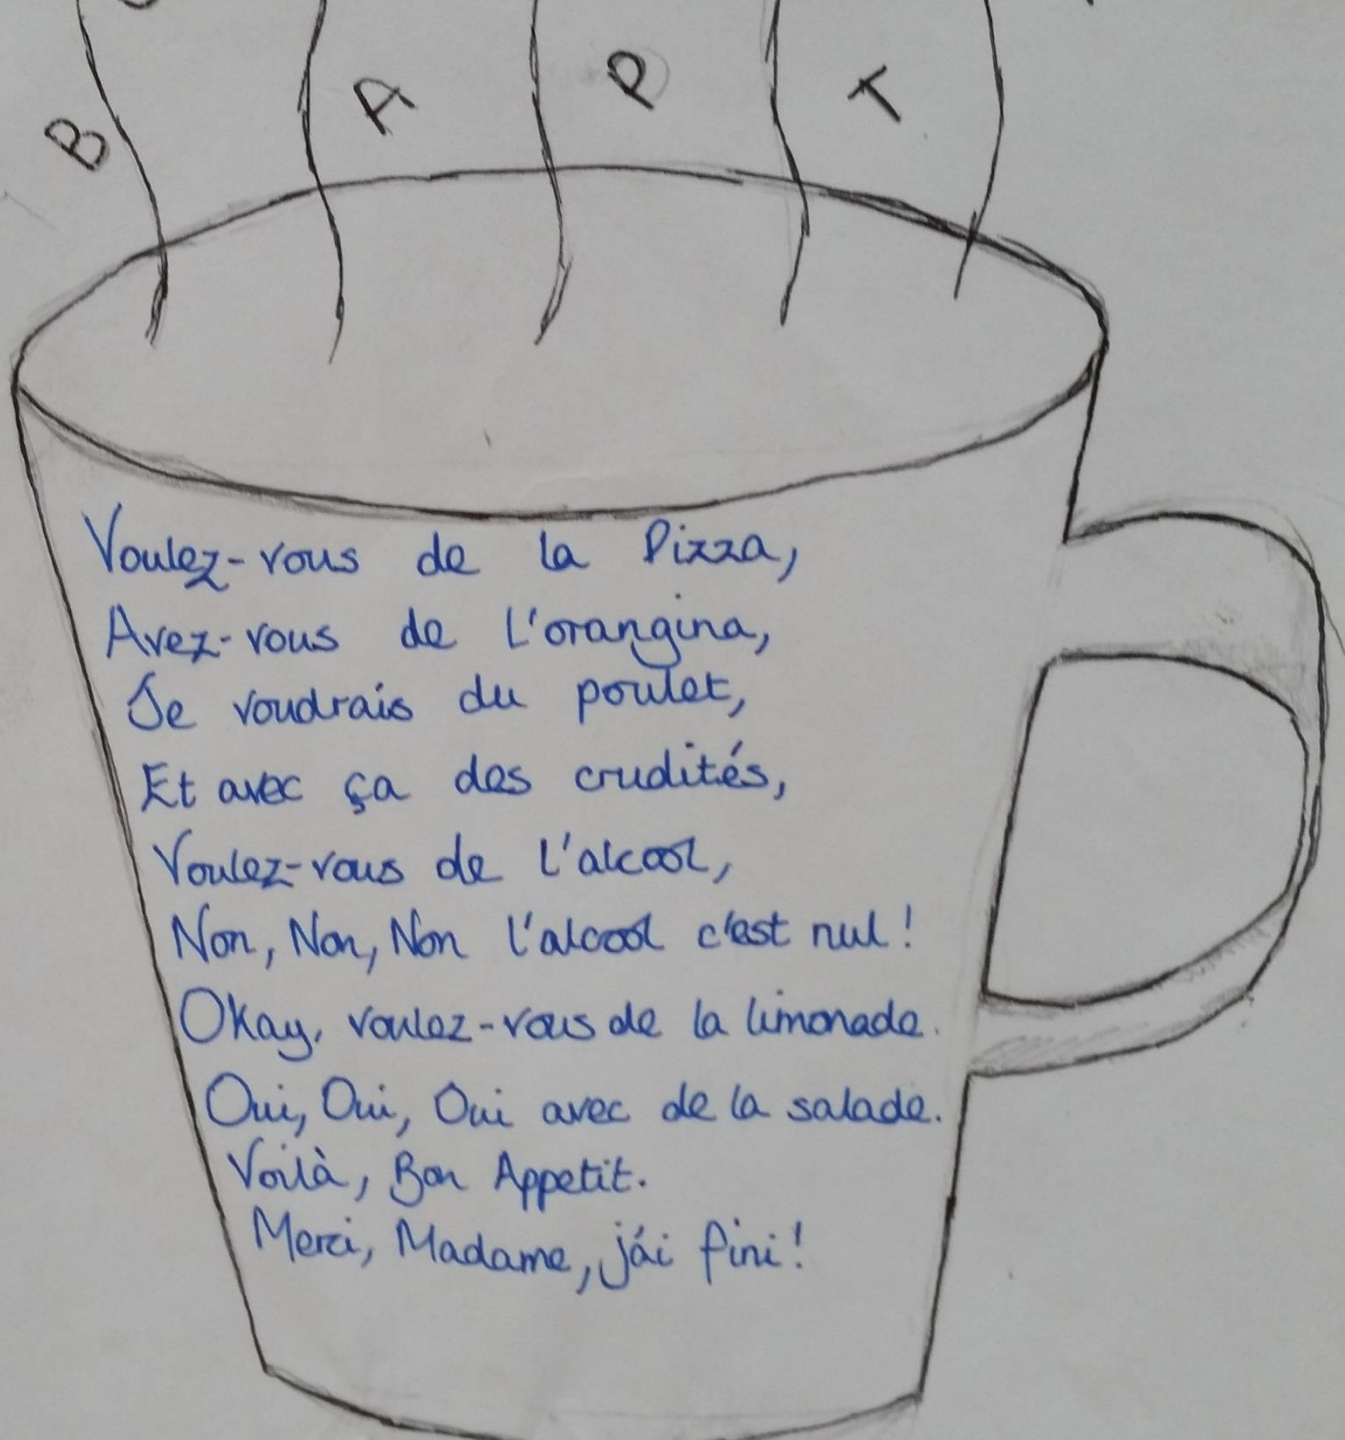 B A P T
Voulez-vous de la Pizza,
Avez-vous de l'orangina,
Je voudrais du poulet,
Et avec ça des crudités,
Voulez-vous de l'alcool,
Non, Non, Non l'alcool c'est nul!
Okay, voulez-vous de la limonade.
Oui, Oui, Oui avec de la salade.
Voilà, Bon Appetit.
Merci, Madame, j'ái fini!